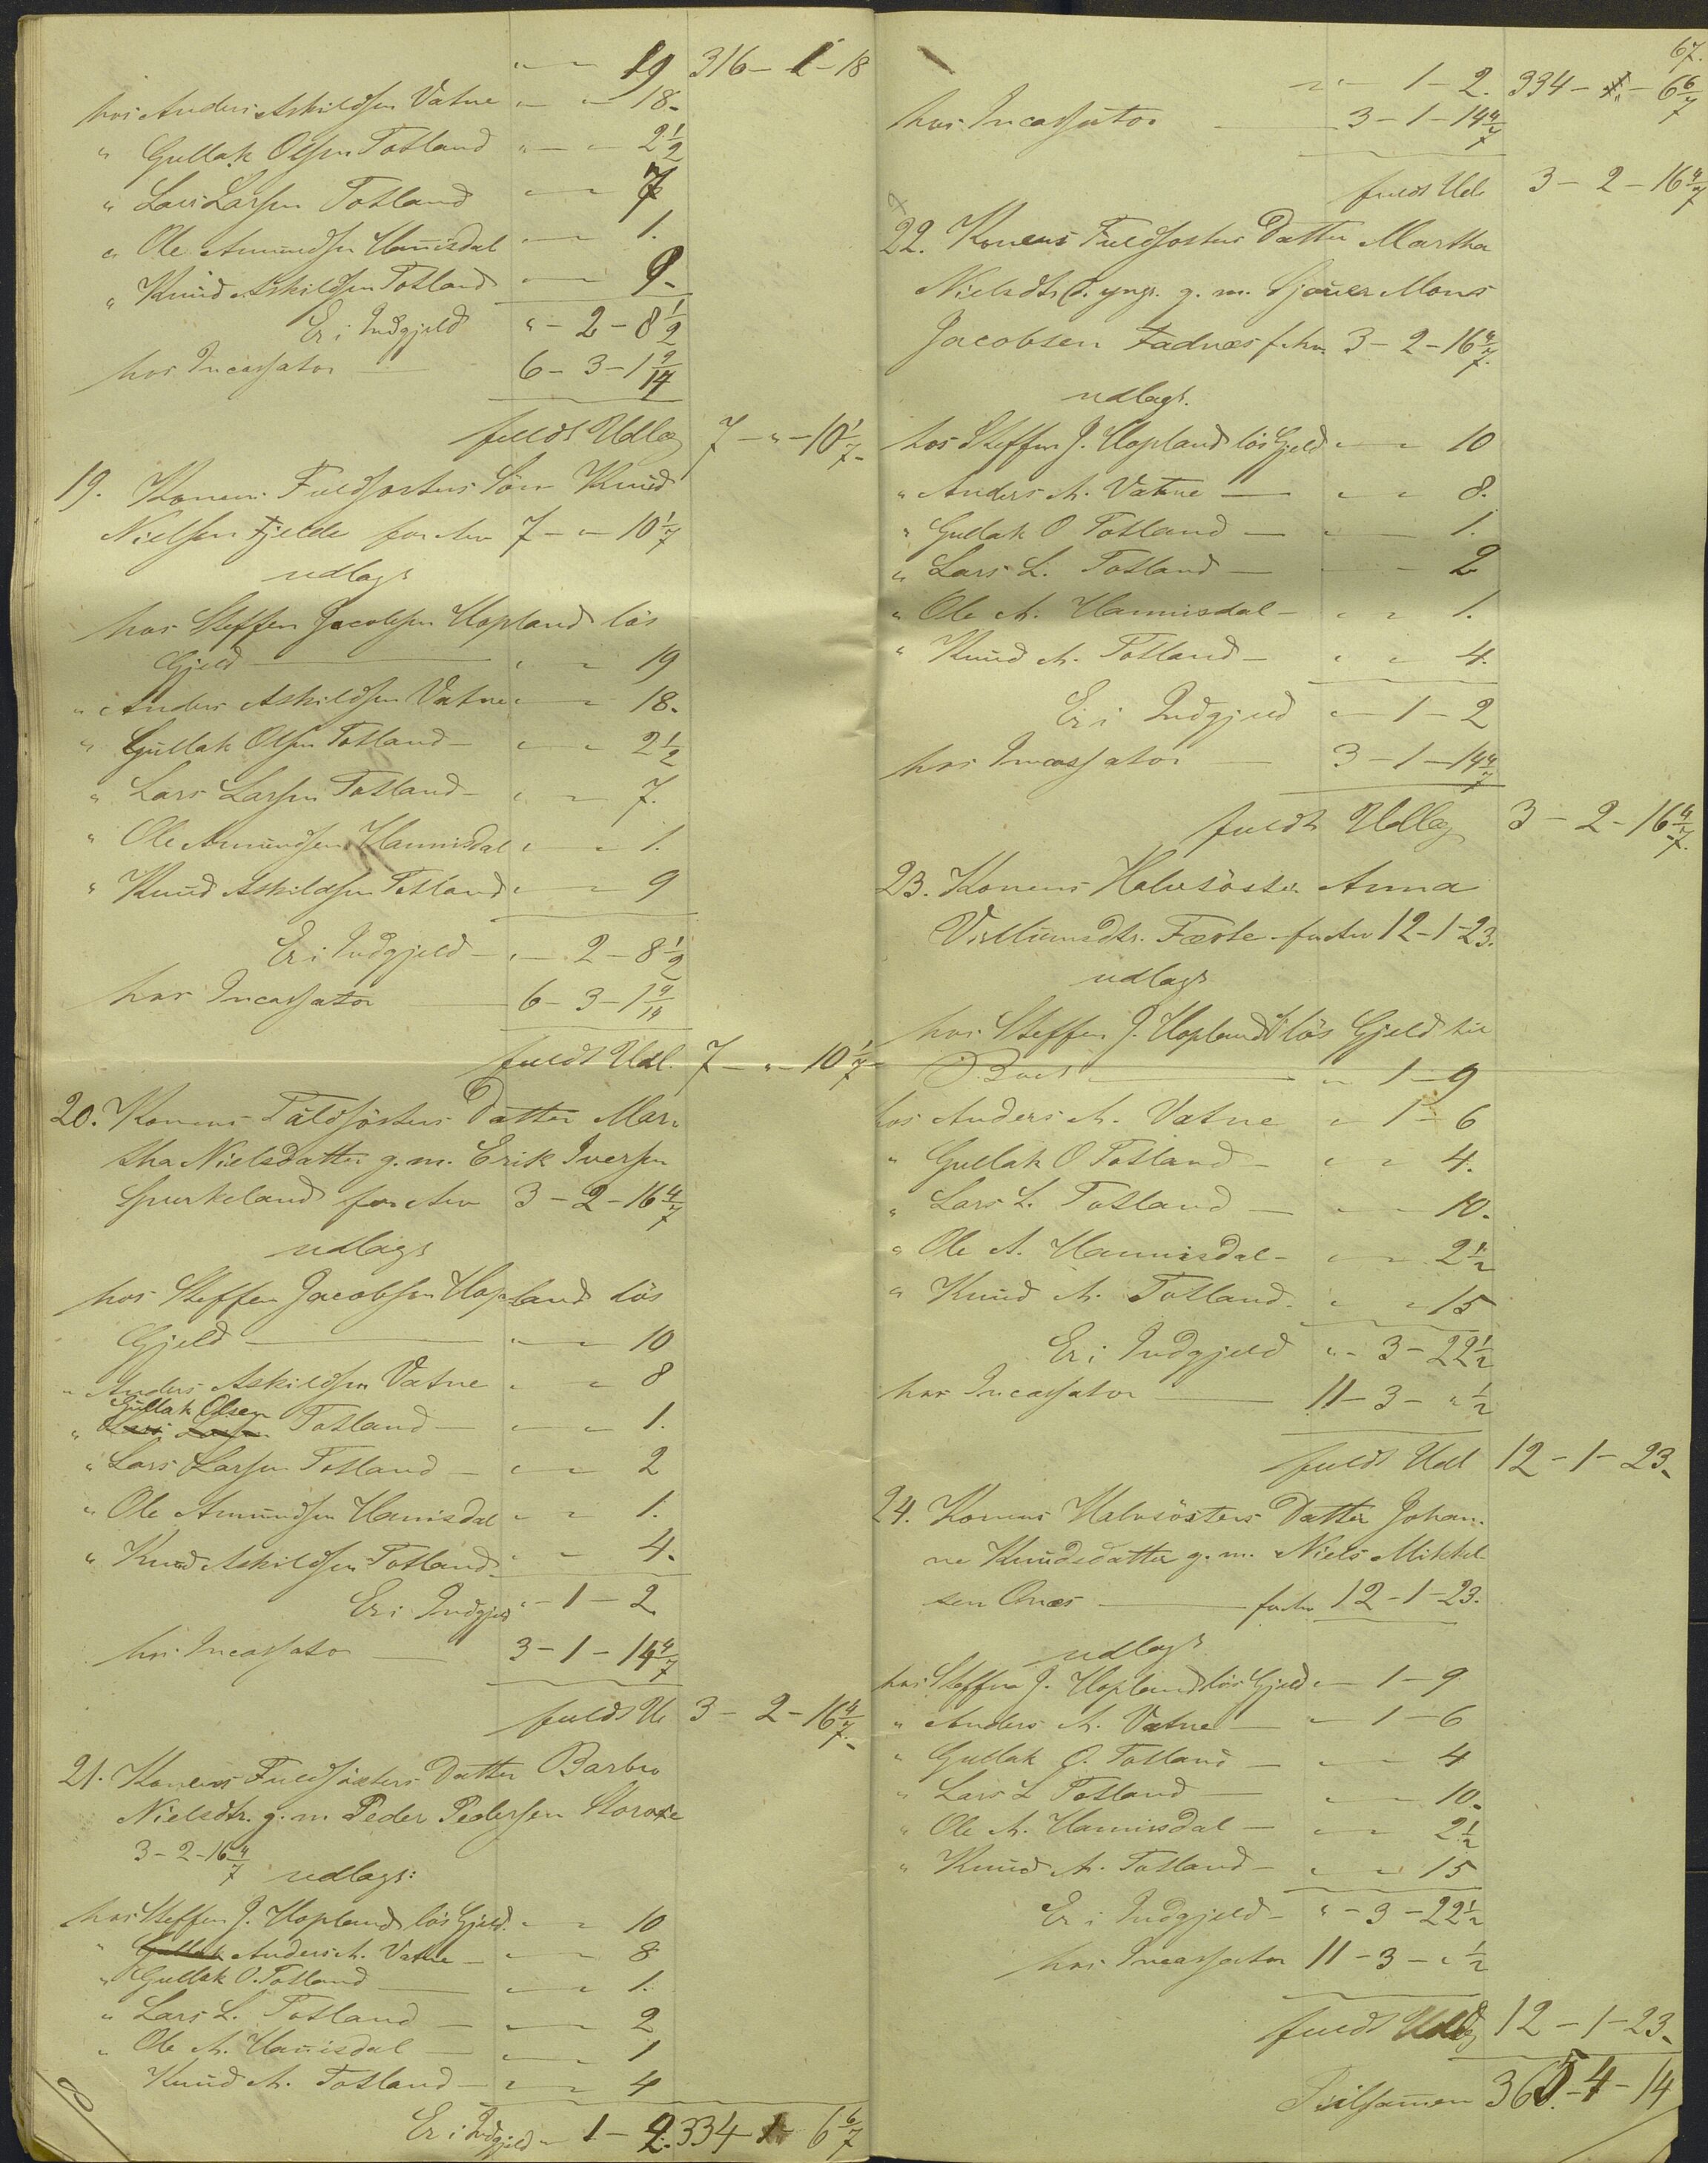 " — " 19 316 - 1 - 18
hos Anders Askildsen Vatne " — " 18.
" Gullak Olsen Totland " — " 2 1/2
" Lars Larsen Totland " — " 7
" Ole Amundsen Hannisdal " — " 1.
" Knud Askildsen Totland " — " 9.
Er i Indgjeld " - 2 - 8 1/2
hos Incassator — 6 - 3 - 1 9/14
fuldt Udlæg 7 - " - 10 1/7
19. Konens Fuldsøsters Søn Knud
Nielsen Fjelde for Arv 7 - " - 10 1/7
udlagt
hos Steffen Jacobsen Hopland løs
Gjeld — " " 19
" Anders Askildsen Vatne " — " 18.
" Gullak Olsen Totland — " " 2 1/2
" Lars Larsen Totland — " " 7.
" Ole Amundsen Hannisdal " " 1.
" Knud Askildsen Totland " — " 9
Er i Indgjeld — " — 2 - 8 1/2
hos Incassator — 6 - 3 - 1 9/14
fuldt Udl. 7 - " - 10 1/7
20. Konens Fuldsøsters Datter Mar-
tha Nielsdatter g. m. Erik Iversen
Spurkeland for Arv 3 - 2 - 16 4/7
udlagt
hos Steffen Jacobsen Hopland løs
Gjeld — " — " 10
" Anders Askildsen Vatne " " 8
Gullak Olsen
" Lars Larsen Totland — " — " 1.
" Lars Larsen Totland — " — " 2
" Ole Amundsen Hanisdal " " 1.
" Knud Askildsen Totland — " " 4.
Er i Indgjeld " - 1 - 2
hos Incassator — 3 - 1 - 14 4/7
fuldt Ud 3 - 2 - 16 4/7
21. Konens Fuldsøsters Datter Barbro
Nielsdtr. g. m. Peder Pedersen Storoxe
3 - 2 - 16 4/7 udlagt:
hos Steffen J. Hopland løs Gjeld. " " 10
" Gullak Anders A. Vatne — " — " 8
" Gullak O. Totland — " — " 1.
" Lars L. Totland — " — " 2
" Ole A. Hanisdal — " — " 1
Knud A. Totland — " — " 4
Er i Indgjeld " 1 - 2. 334 - 1 - 6 6/7
67.
" " 1 - 2. 334 - " - 6 6/7
hos Incassator — 3 - 1 - 14 4/7
fuldt Udl 3 - 2 - 16 4/7
22. Konens Fuldsøsters Datter Martha
Nielsdtr. d. yngr. g. m. Mons
Jacobsen Fadnæs f. Arv 3 - 2 - 16 4/7.
udlagt.
hos Steffen J. Hopland løs Gjeld " — " 10
" Anders A. Vatne — " " 8.
" Gullak O Totland — " — 1.
" Lars L. Totland — " " 2
" Ole A. Hannisdal — " " 1.
" Knud A. Totland — " " 4.
Er i Indgjeld " — 1 - 2
hos Incassator — 3 - 1 - 14 4/7
fuldt Udlæg 3 - 2 - 16 4/7.
23. Konens Halvsøster Anna
Villumsdtr. Førle for Arv 12 - 1 - 23.
udlagt
hos Steffen J. Hopland løs Gjeld til
Boet — " 1 - 9
hos Anders A. Vatne " 1 - 6
" Gullak O Totland — " " 4.
" Lars L. Totland — " " 10.
" Ole A. Hannisdal — " — " 2 1/2
" Knud A. Totland. " " 15
Er i Indgjeld " - 3 - 22 1/2
hos Incassator — 11 - 3 - " 1/2
fuldt Udl 12 - 1 - 23.
24. Konens Halvsøsters Datter Johan-
ne Knudsdatter g. m. Niels Mikkel-
sen Onæs — for Arv 12 - 1 - 23.
udlagt
hos Steffen J. Hopland løs Gjeld " — 1 - 9
" Anders A. Vatne — " — 1 - 6
" Gullak O. Totland — " — " 4
" Lars L Totland — " — " 10.
" Ole A. Hannisdal — " — " 2 1/2
" Knud A. Totland — " " 15
Er i Indgjeld — " - 3 - 22 1/2
hos Incassator 11 - 3 - " 1/2
fuldt Udlæg 12 - 1 - 23.
Tilsammen 365 - 4 - 14